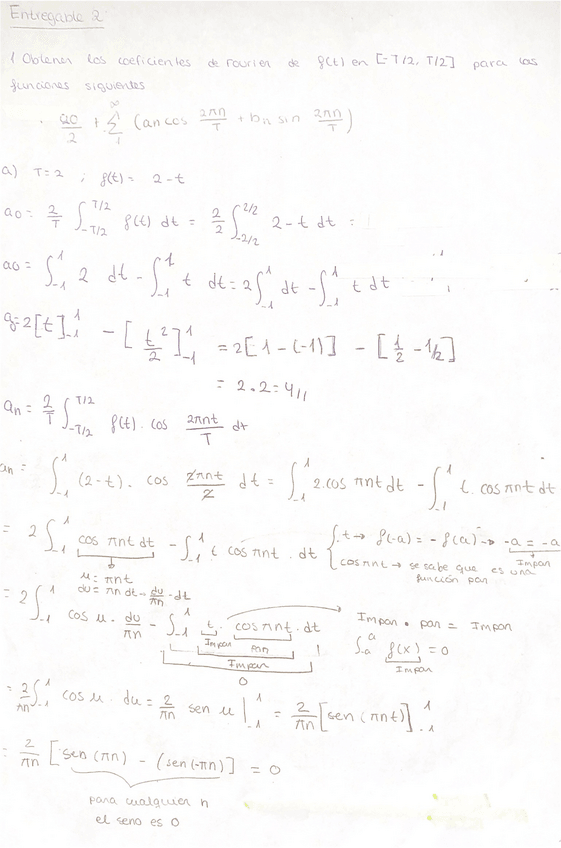 Entregable 2
1 Obtener los coeficientes de Fourier de f(t) en [-T/2, T/2] para las
funciones siguientes
· a0/2 + ∑_1^∞ (an cos 2πn/T + bn sin 2πn/T)
a) T=2 ; f(t) = 2-t
a0 = 2/T ∫_{-T/2}^{T/2} f(t) dt = 2/2 ∫_{-2/2}^{2/2} 2-t dt =
a0 = ∫_{-1}^{1} 2 dt - ∫_{-1}^{1} t dt = 2∫_{-1}^{1} dt - ∫_{-1}^{1} t dt
a0 = 2[t]_{-1}^{1} - [t²/2]_{-1}^{1} = 2[1-(-1)] - [1/2 - 1/2]
= 2·2 = 4//
an = 2/T ∫_{-T/2}^{T/2} f(t)· cos 2πnt/T dt
an = ∫_{-1}^{1} (2-t)· cos 2πnt/2 dt = ∫_{-1}^{1} 2·cos πnt dt - ∫_{-1}^{1} t·cos πnt dt
= 2∫_{-1}^{1} cos πnt dt - ∫_{-1}^{1} t cos πnt · dt { t → f(-a) = - f(a) → -a = -a
Impar
cosπnt → se sabe que es una
función par
u = πnt
du = πn dt → du/πn · dt
= 2∫_{-1}^{1} cos u · du/πn - ∫_{-1}^{1} t · cosπnt · dt
Impar Par
Impar
0
Impar · par = Impar
∫_{-a}^{a} f(x) = 0
Impar
= 2/πn ∫_{-1}^{1} cos u · du = 2/πn sen u |_{-1}^{1} = 2/πn [sen(πnt)]_{-1}^{1}
= 2/πn [sen(πn) - (sen(-πn)] = 0
para cualquier n
el seno es 0